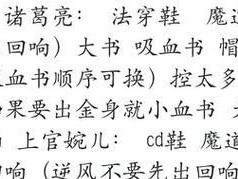 诸葛亮： 法穿鞋 魔道
回响）大书 吸血书 帽
血书顺序可换）控太多
果要出金身就小血书
上官婉儿： cd鞋 魔道
响（逆风不要先出回响